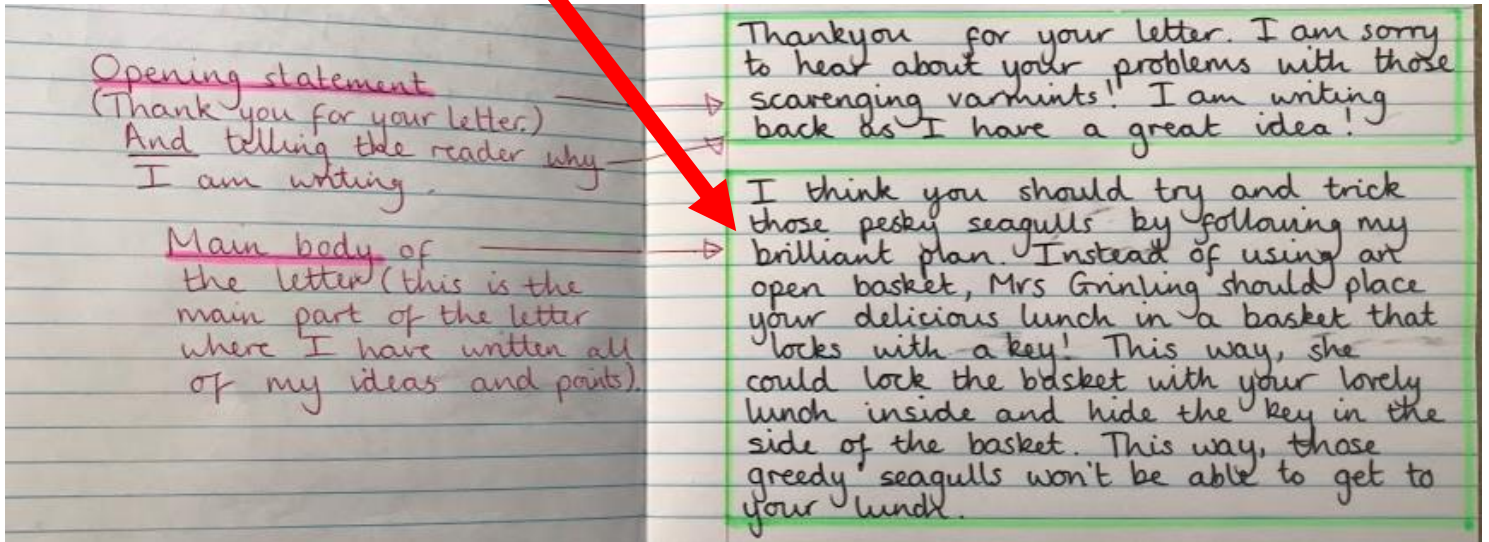 Opening statement
(Thank you for your letter.)
And telling the reader why
I am writing.
Main body of
the letter (this is the
main part of the letter
where I have written all
of my ideas and points).
Thankyou for your letter. I am sorry
to hear about your problems with those
scavenging varmints!" I am writing
back as I have a great idea!
I think you should try and trick
those pesky seagulls by following my
brilliant plan. Instead of using an
open basket, Mrs Grinling should place
your delicious lunch in a basket that
locks with a key! This way, she
could lock the basket with your lovely
lunch inside and hide the key in the
side of the basket. This way, those
greedy seagulls won't be able to get to
your lunch.